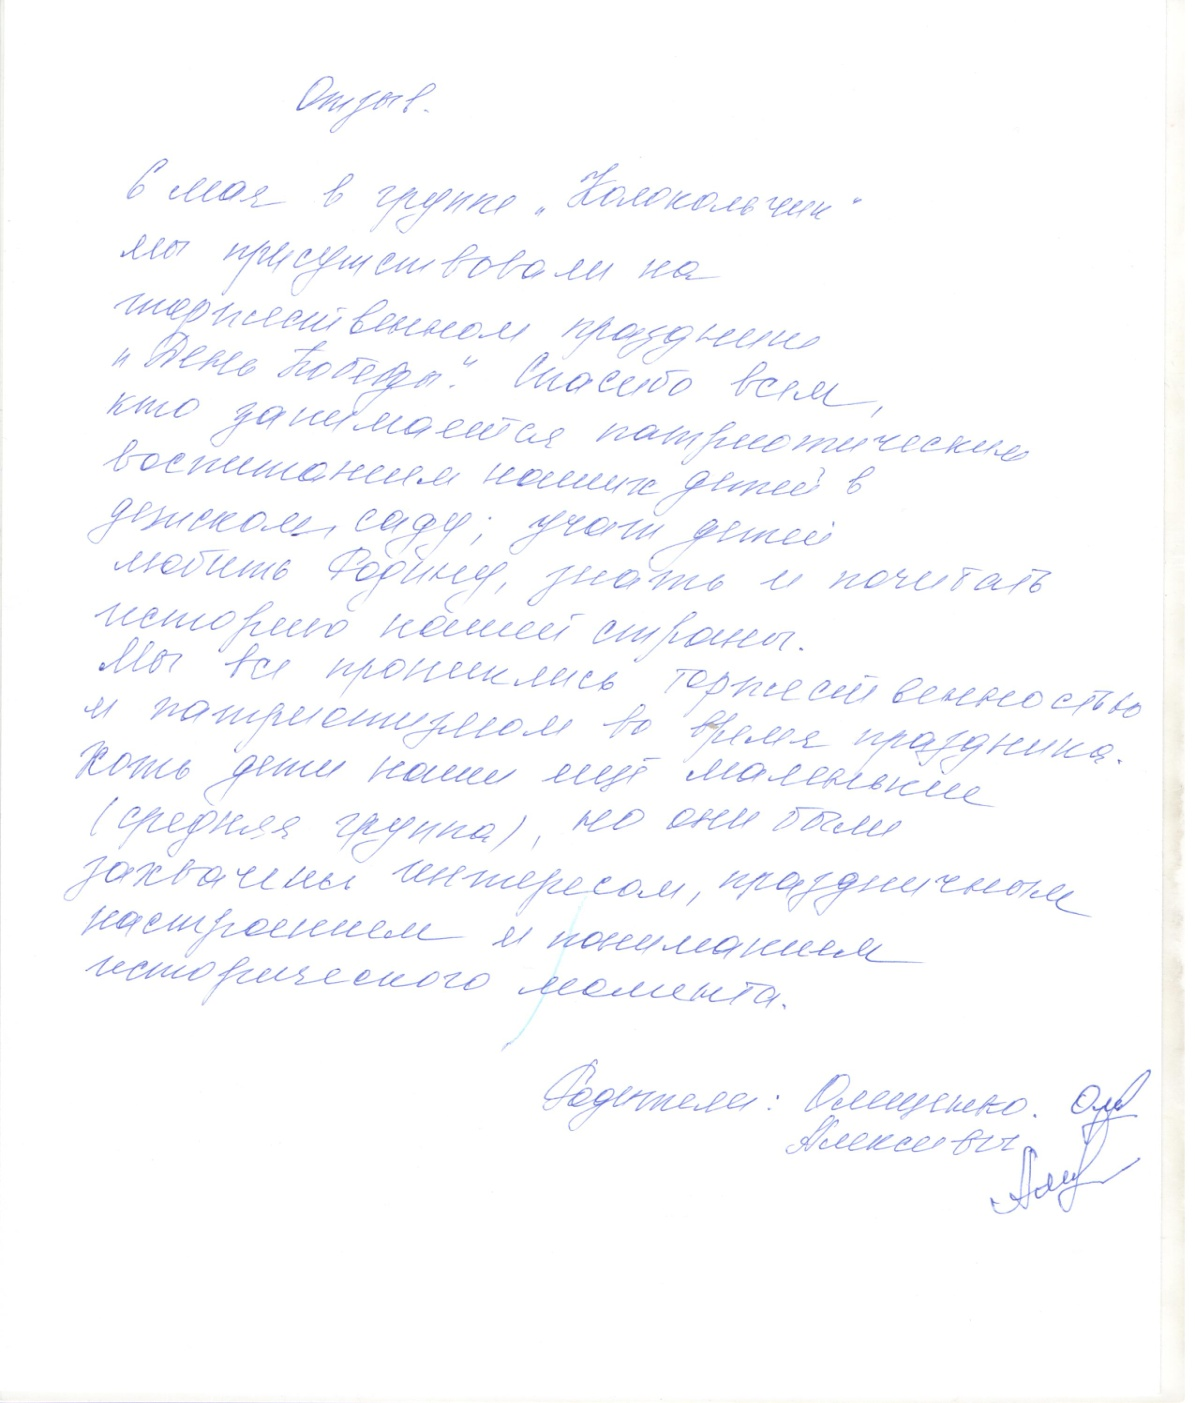 Отзыв.
6 мая в группе „Колокольчик"
мы присутствовали на
торжественном празднике
„День Победы". Спасибо всем,
кто занимается патриотическим
воспитанием наших детей в
детском саду; учат детей
любить Родину, знать и почитать
историю нашей страны.
Мы все прониклись торжественностью
и патриотизмом во время праздника.
Хоть дети наши ещё маленькие
(средняя группа), но они были
захвачены интересом, праздничным
настроением и пониманием
исторического момента.
Родители: Олещенко.
Алексеевы